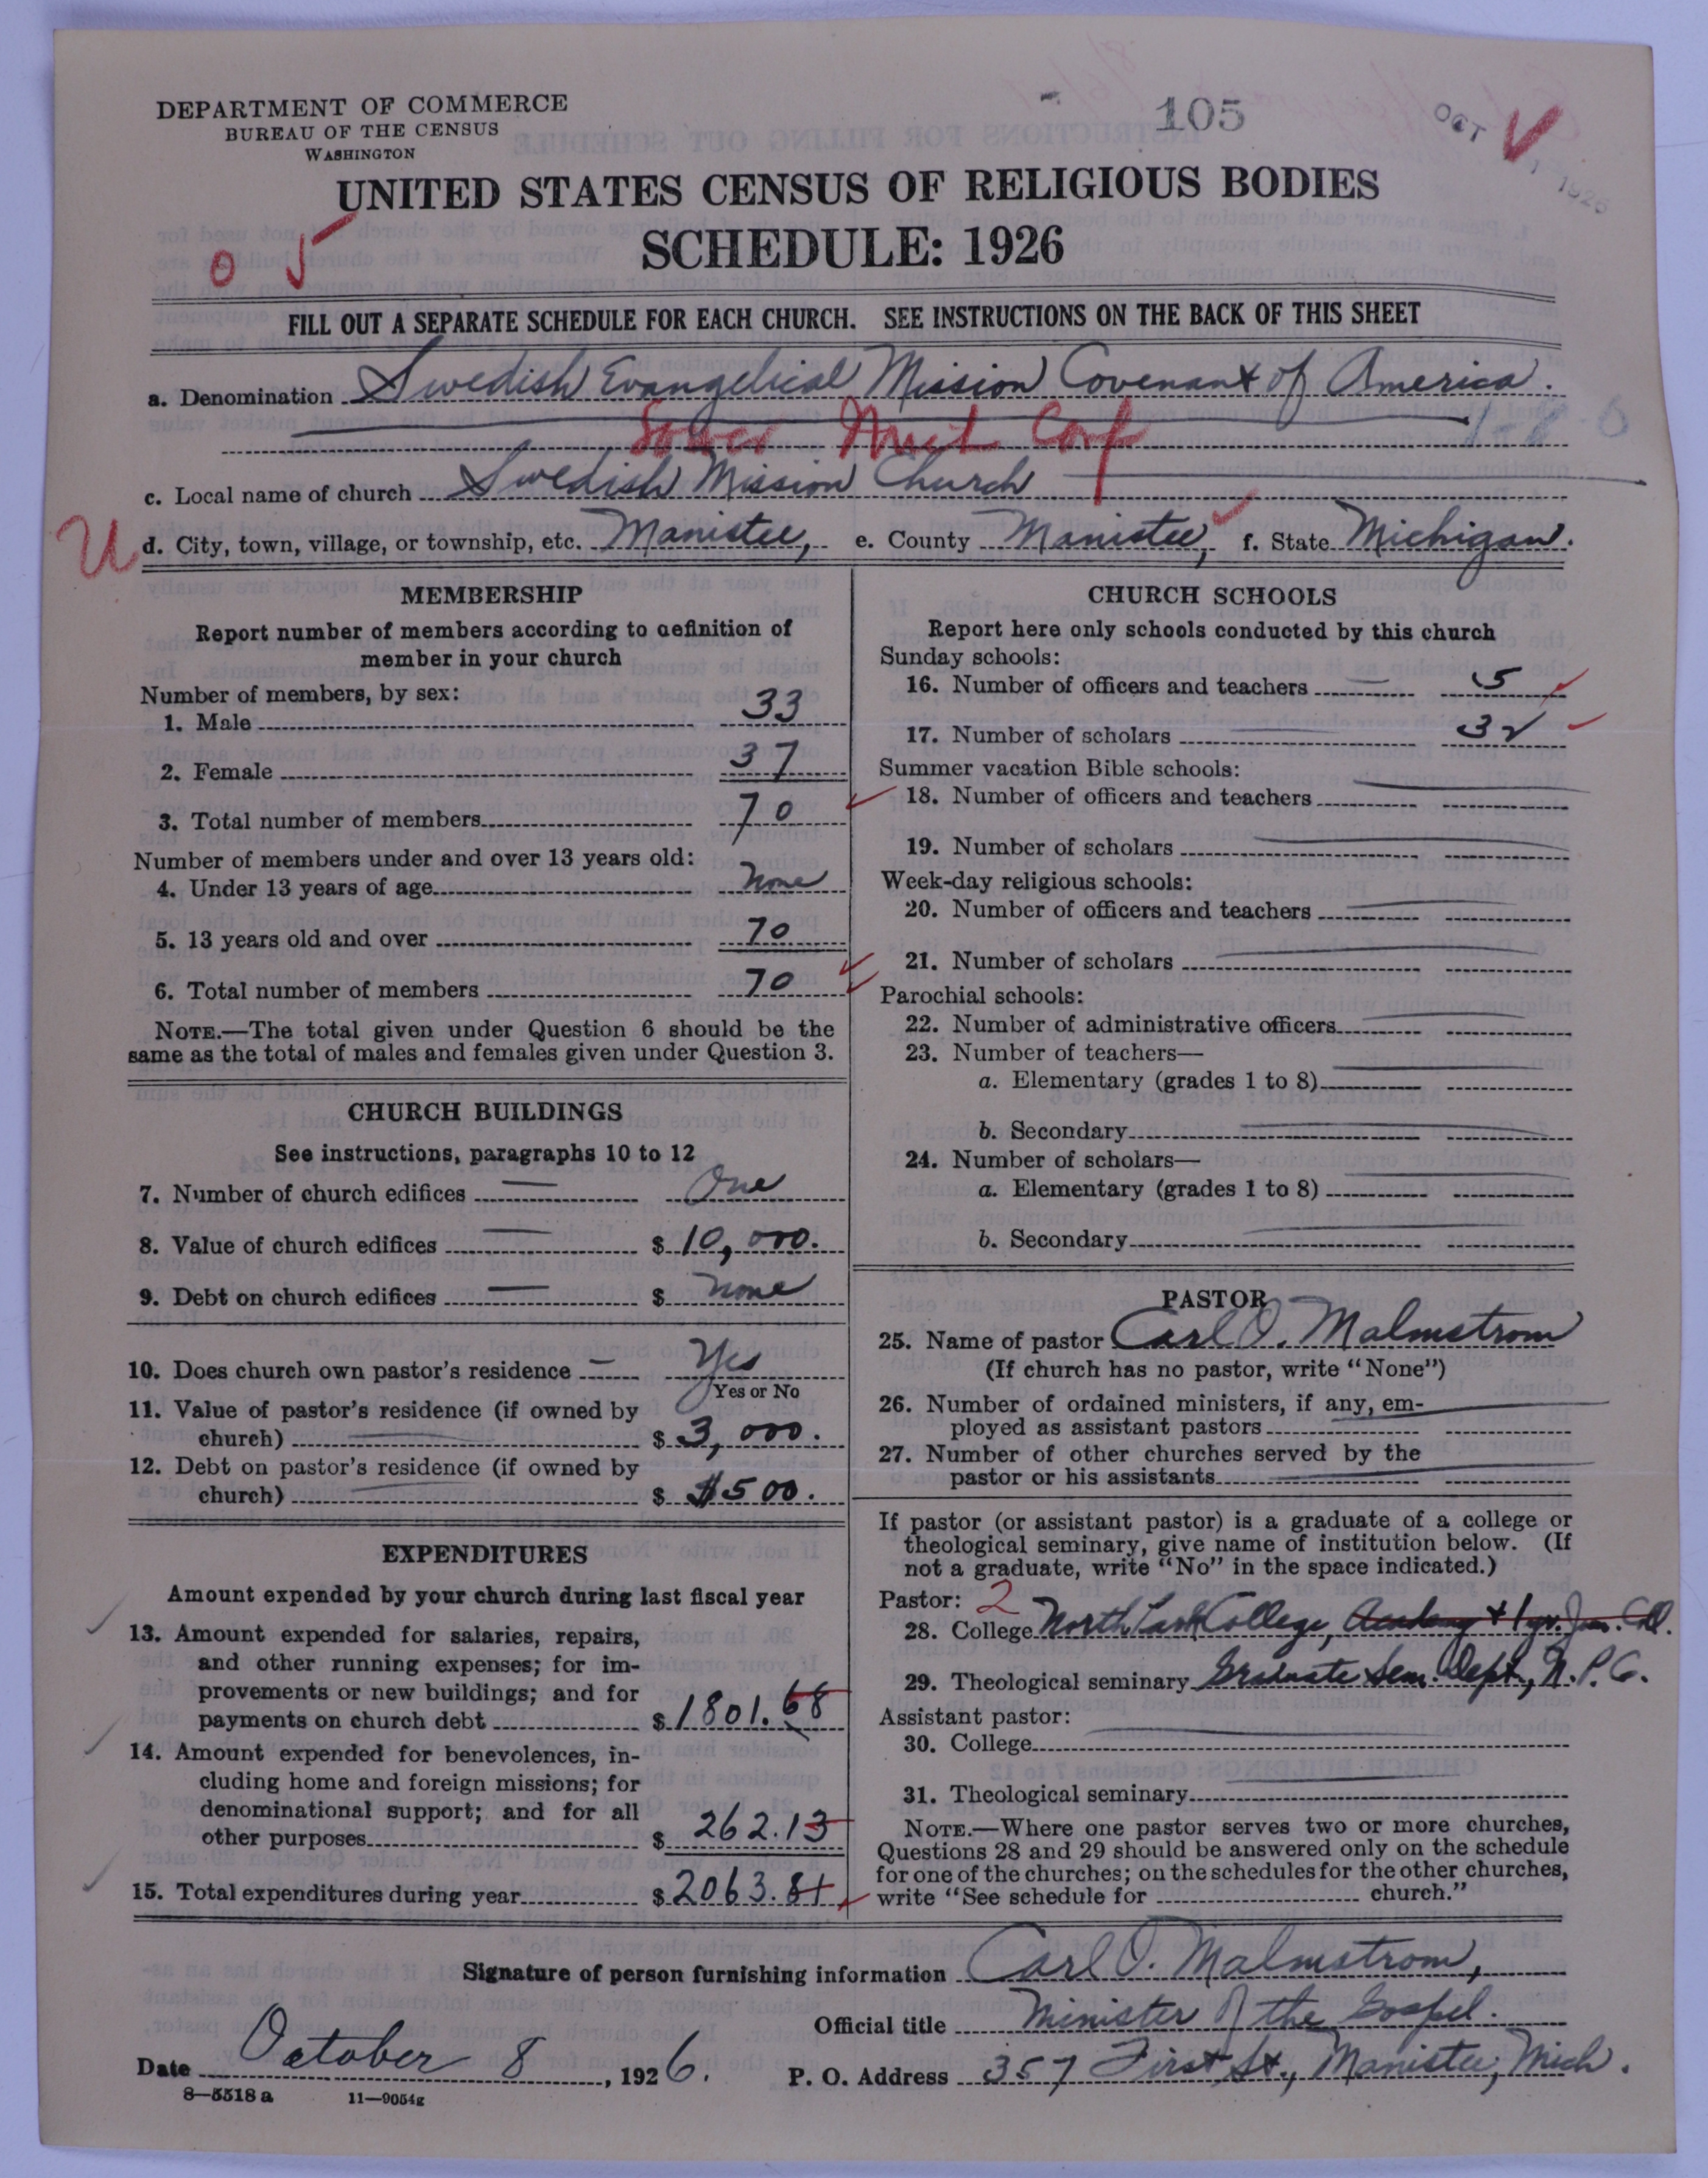 DEPARTMENT OF COMMERCE
BUREAU OF THE CENSUS
WASHINGTON
105
OCT 1926
UNITED STATES CENSUS OF RELIGIOUS BODIES
SCHEDULE: 1926
0 5
FILL OUT A SEPARATE SCHEDULE FOR EACH CHURCH. SEE INSTRUCTIONS ON THE BACK OF THIS SHEET
a. Denomination Swedish Evangelical Mission Covenant of America.
c. Local name of church Swedish Mission Church
U
d. City, town, village, or township, etc. Manistee, e. County Manistee, f. State Michigan.
MEMBERSHIP
Report number of members according to definition of
member in your church
Number of members, by sex:
1. Male 33
2. Female 37
3. Total number of members 70
Number of members under and over 13 years old:
4. Under 13 years of age None
5. 13 years old and over 70
6. Total number of members 70
NOTE.—The total given under Question 6 should be the
same as the total of males and females given under Question 3.
CHURCH BUILDINGS
See instructions, paragraphs 10 to 12
7. Number of church edifices One
8. Value of church edifices $ 10,000.
9. Debt on church edifices $ None
10. Does church own pastor's residence Yes
Yes or No
11. Value of pastor's residence (if owned by
church) $ 3,000.
12. Debt on pastor's residence (if owned by
church) $ $500.
EXPENDITURES
Amount expended by your church during last fiscal year
13. Amount expended for salaries, repairs,
and other running expenses; for im-
provements or new buildings; and for
payments on church debt $ 1801.68
14. Amount expended for benevolences, in-
cluding home and foreign missions; for
denominational support; and for all
other purposes $ 262.13
15. Total expenditures during year $ 2063.81
CHURCH SCHOOLS
Report here only schools conducted by this church
Sunday schools:
16. Number of officers and teachers 5
17. Number of scholars 32
Summer vacation Bible schools:
18. Number of officers and teachers
19. Number of scholars
Week-day religious schools:
20. Number of officers and teachers
21. Number of scholars
Parochial schools:
22. Number of administrative officers
23. Number of teachers—
a. Elementary (grades 1 to 8)
b. Secondary
24. Number of scholars—
a. Elementary (grades 1 to 8)
b. Secondary
PASTOR
25. Name of pastor Carl O. Malmstrom
(If church has no pastor, write "None")
26. Number of ordained ministers, if any, em-
ployed as assistant pastors
27. Number of other churches served by the
pastor or his assistants
If pastor (or assistant pastor) is a graduate of a college or
theological seminary, give name of institution below. (If
not a graduate, write "No" in the space indicated.)
Pastor: 2
28. College North Park College, Academy + 1 yr. Jun. Coll.
29. Theological seminary Graduate Sem. Dept., N.P.C.
Assistant pastor:
30. College
31. Theological seminary
NOTE.—Where one pastor serves two or more churches,
Questions 28 and 29 should be answered only on the schedule
for one of the churches; on the schedules for the other churches,
write "See schedule for church."
Signature of person furnishing information Carl O. Malmstrom,
Official title Minister of the Gospel.
Date October 8, 1926. P. O. Address 357 First St., Manistee, Mich.
8—5518 a 11—9054g